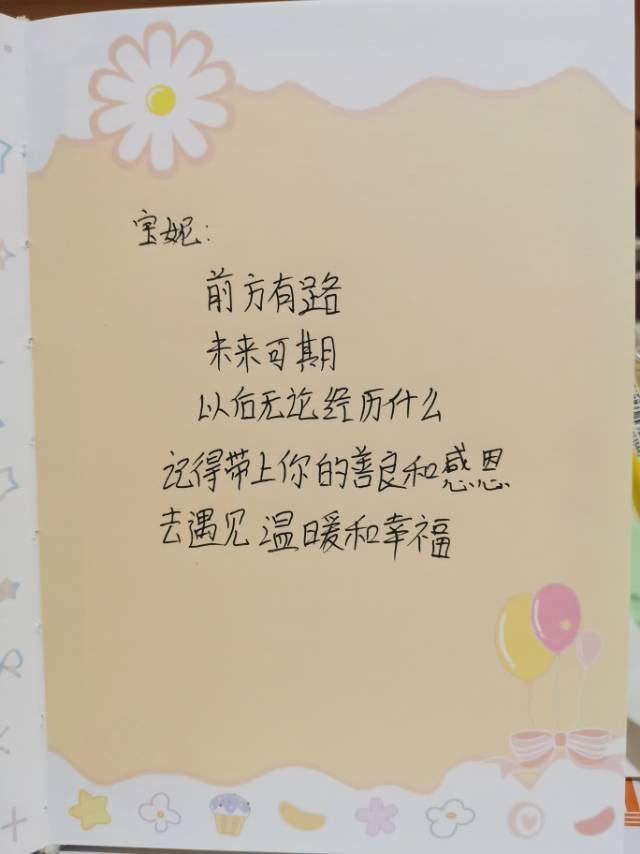 宝妮:
前方有路
未来可期
以后无论经历什么
记得带上你的善良和感恩
去遇见温暖和幸福